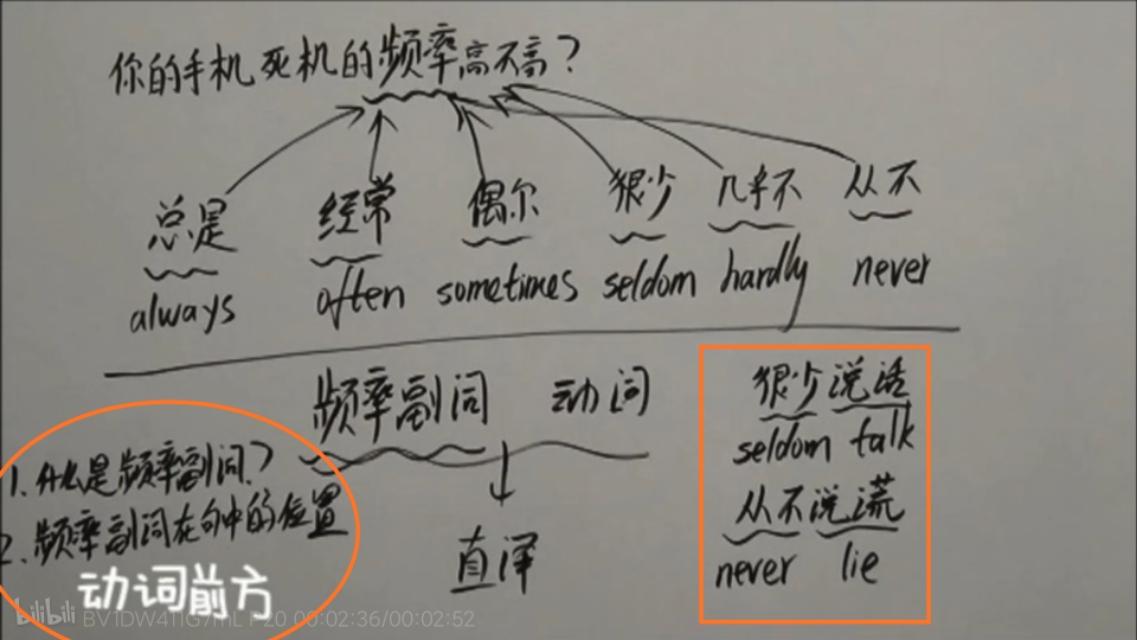 你的手机死机的频率高不高?
总是 经常 偶尔 很少 几乎不 从不
always often sometimes seldom hardly never
频率副词 动词
直译
很少说话
seldom talk
从不说谎
never lie
1.什么是频率副词?
2.频率副词在句中的位置
动词前方
bilibili
00:02:36/00:02:52